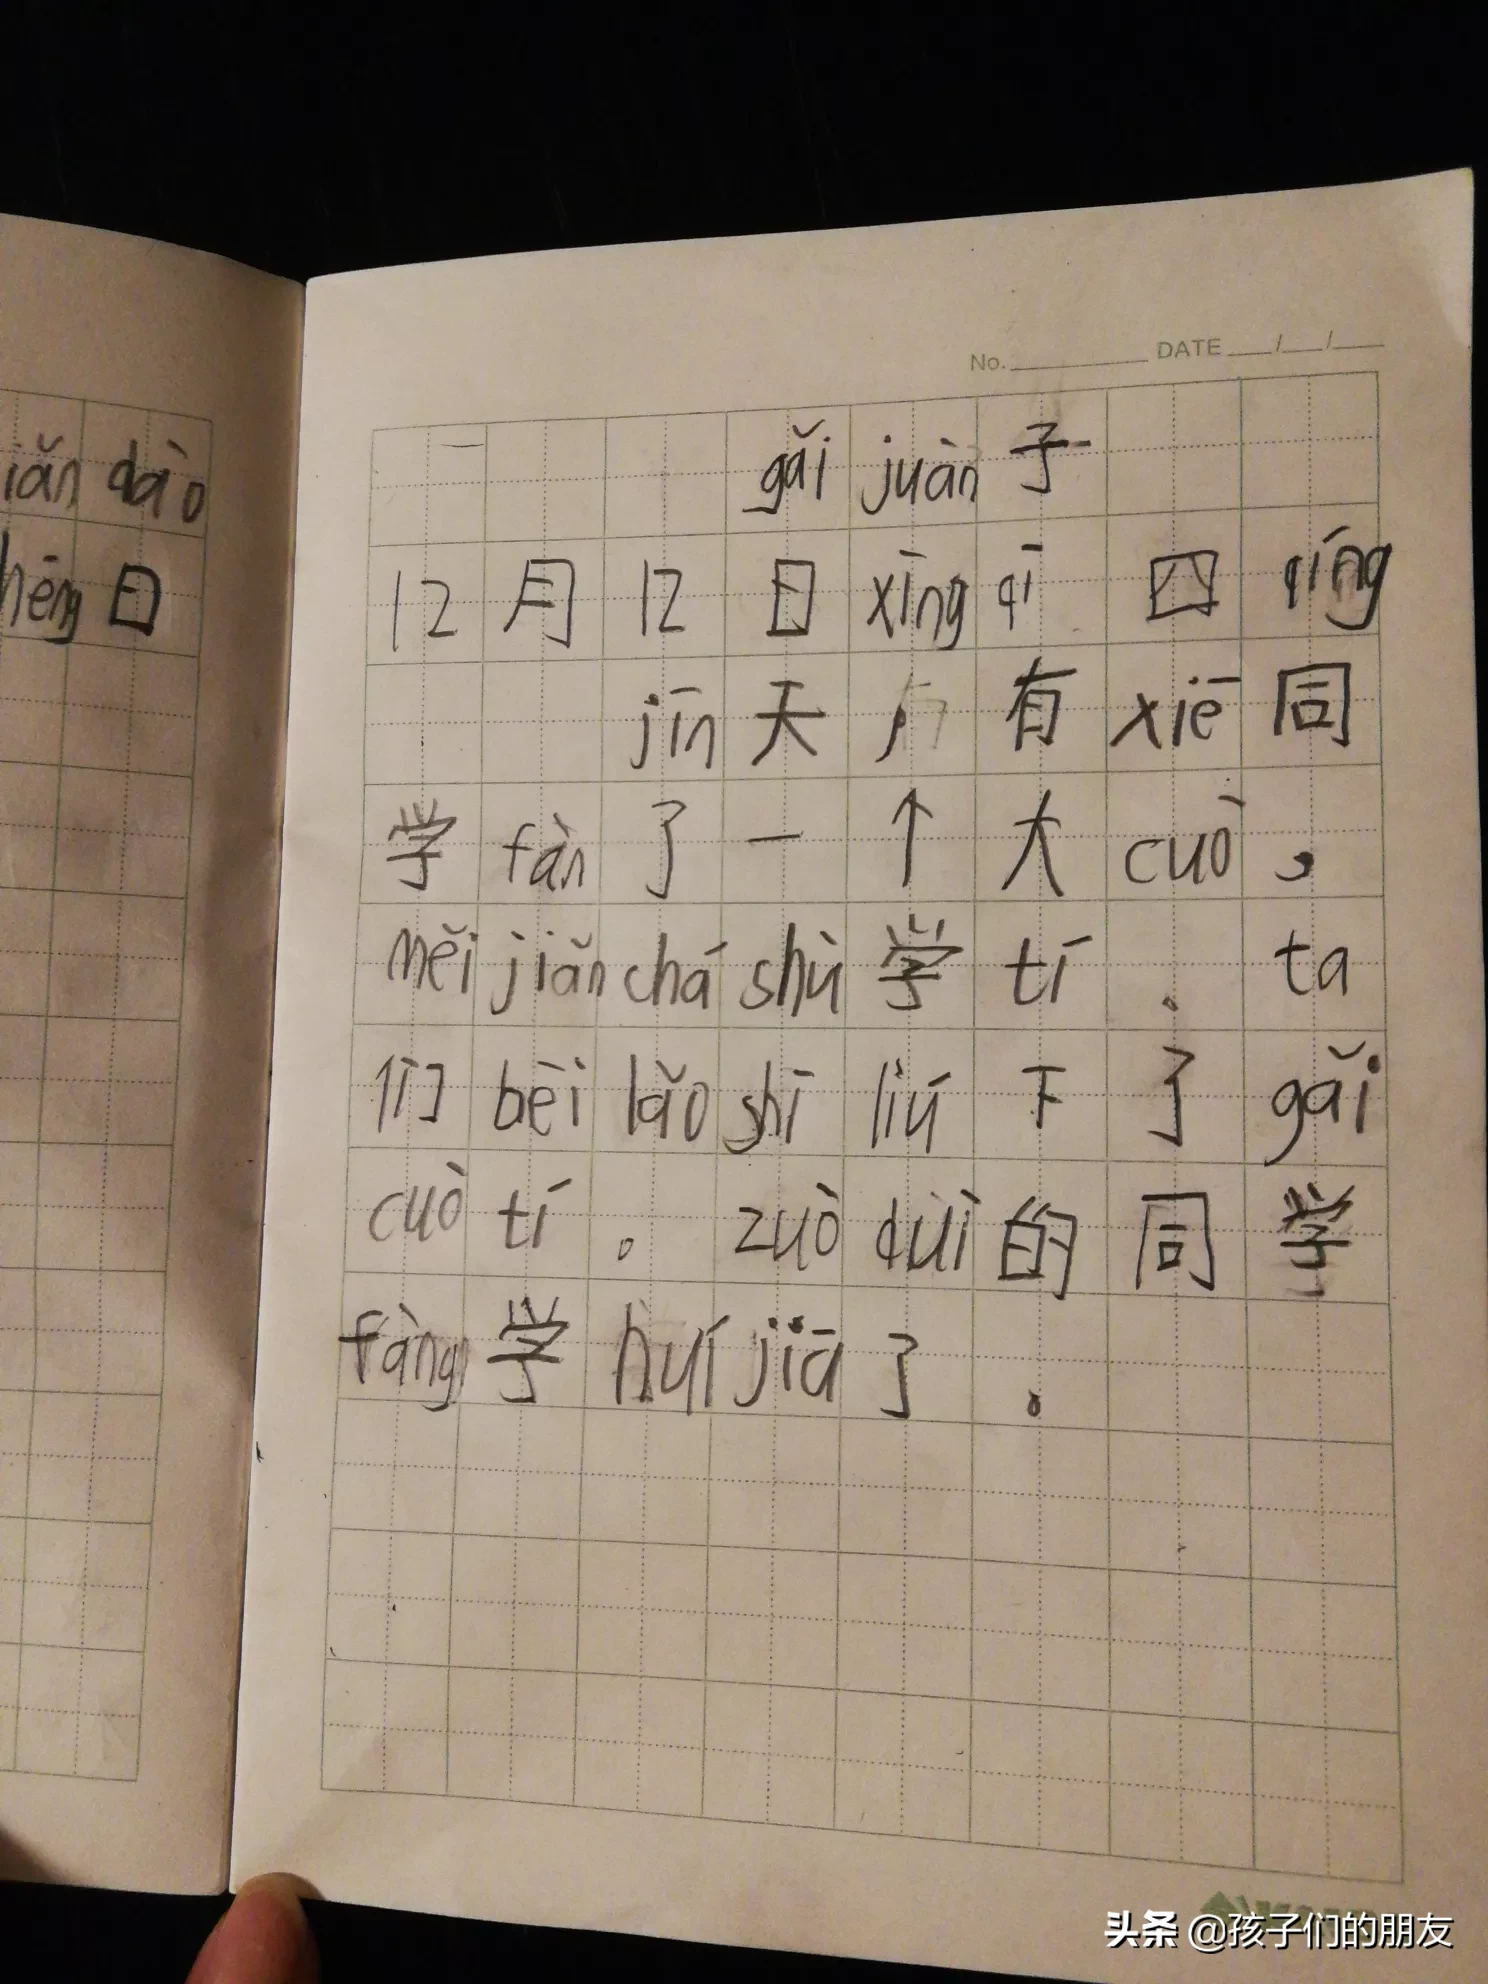 iǎn dào
hēng 日
No. DATE / /
gǎi juàn 子
12 月 12 日 xīng qī 四 qíng
jīn 天 有 xiē 同
学 fàn 了 一 个 大 cuò ，
měi jiǎn chá shù 学 tí 。 ta
们 bèi lǎo shī liú 下 了 gǎi
cuò tí 。 zuò duì 的 同 学
fàng 学 huí jiā 了 。
头条 @孩子们的朋友